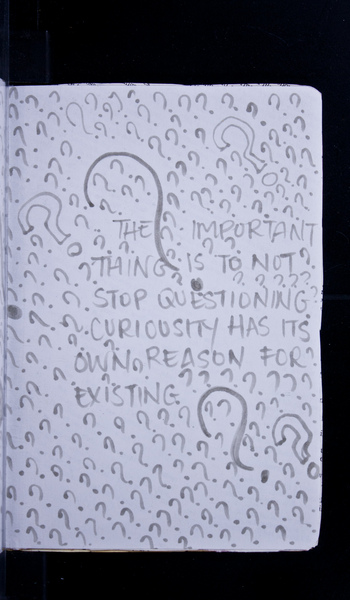 THE IMPORTANT
THING IS TO NOT
STOP QUESTIONING
CURIOUSITY HAS ITS
OWN REASON FOR
EXISTING